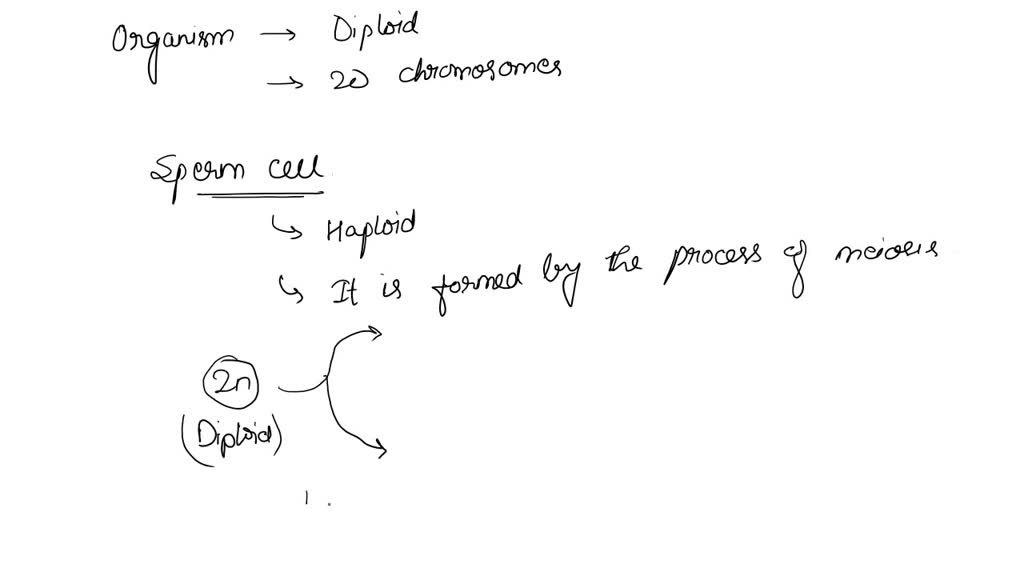 Organism → Diploid
→ 20 chromosomes
Sperm cell
↳ Haploid
↳ It is formed by the process of meiosis
2n
(Diploid)
1 .